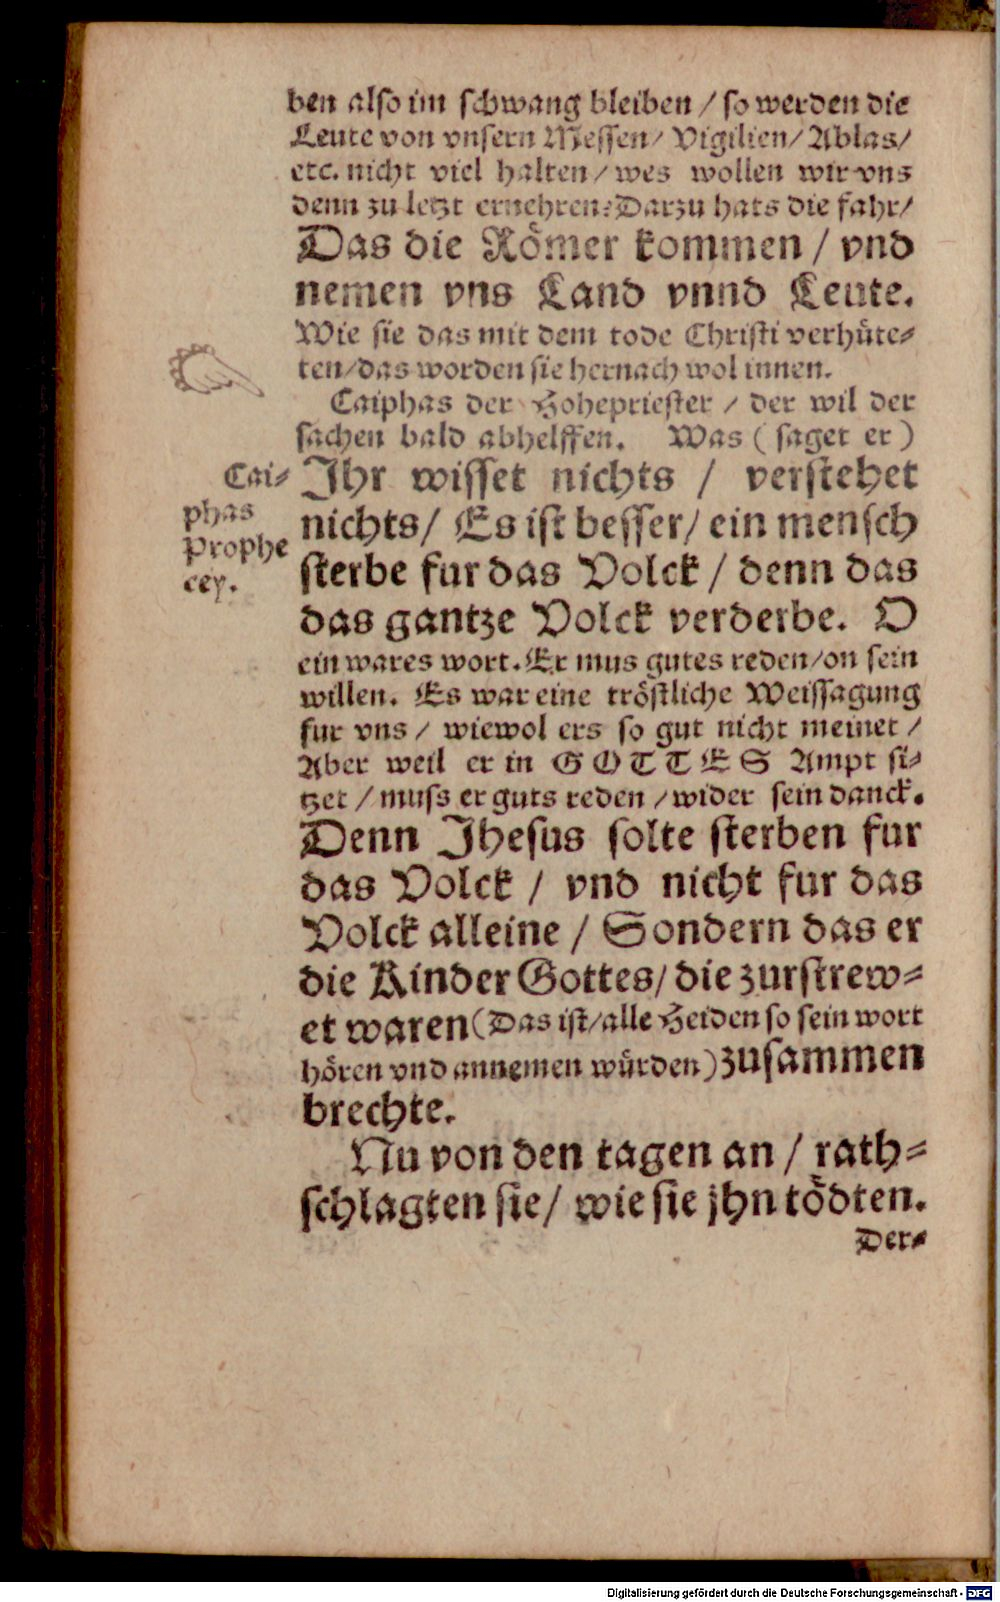 ben also im schwang bleiben / so werden die
Leute von vnsern Messen / Vigilien / Ablas /
etc. nicht viel halten / wes wollen wir vns
denn zu letzt ernehren: Darzu hats die fahr /
Das die Römer kommen / vnd
nemen vns Land vnnd Leute.
Wie sie das mit dem tode Christi verhüte-
ten / das worden sie hernach wol innen.
Caiphas der Hohepriester / der wil der
sachen bald abhelffen. Was ( saget er )
Cai-
phas
Prophe
cey.
Ihr wisset nichts / verstehet
nichts / Es ist besser / ein mensch
sterbe fur das Volck / denn das
das gantze Volck verderbe. O
ein wares wort. Er mus gutes reden / on sein
willen. Es war eine tröstliche Weissagung
fur vns / wiewol ers so gut nicht meinet /
Aber weil er in GOTTES Ampt si-
tzet / muss er guts reden / wider sein danck.
Denn Jhesus solte sterben fur
das Volck / vnd nicht fur das
Volck alleine / Sondern das er
die Kinder Gottes / die zurstrew-
et waren (Das ist / alle Heiden so sein wort
hören vnd annemen würden) zusammen
brechte.
Nu von den tagen an / rath-
schlagten sie / wie sie jhn tödten.
Der-
Digitalisierung gefördert durch die Deutsche Forschungsgemeinschaft - DFG